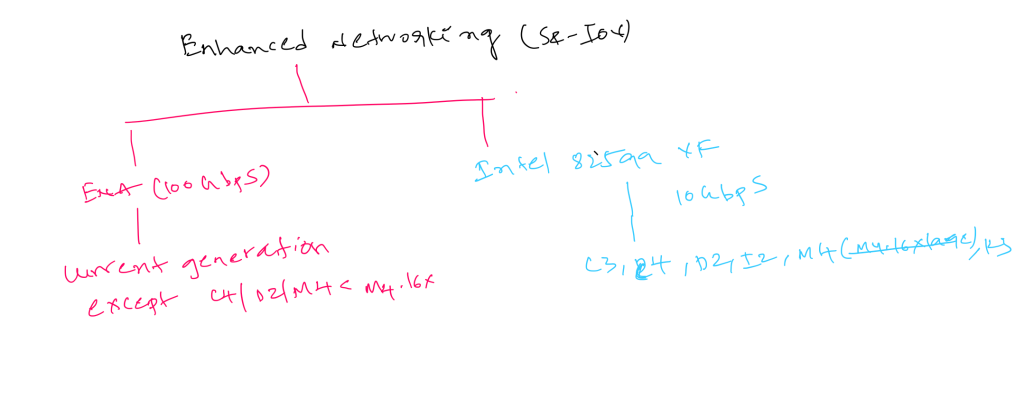 Enhanced Networking (SR-IOV)
ENA (100GbpS)
Intel 82599 VF
10GbpS
current generation
except C4/D2/M4 < M4.16x
C3, C4, D2, I2, M4 (M4.16xlarge), R3